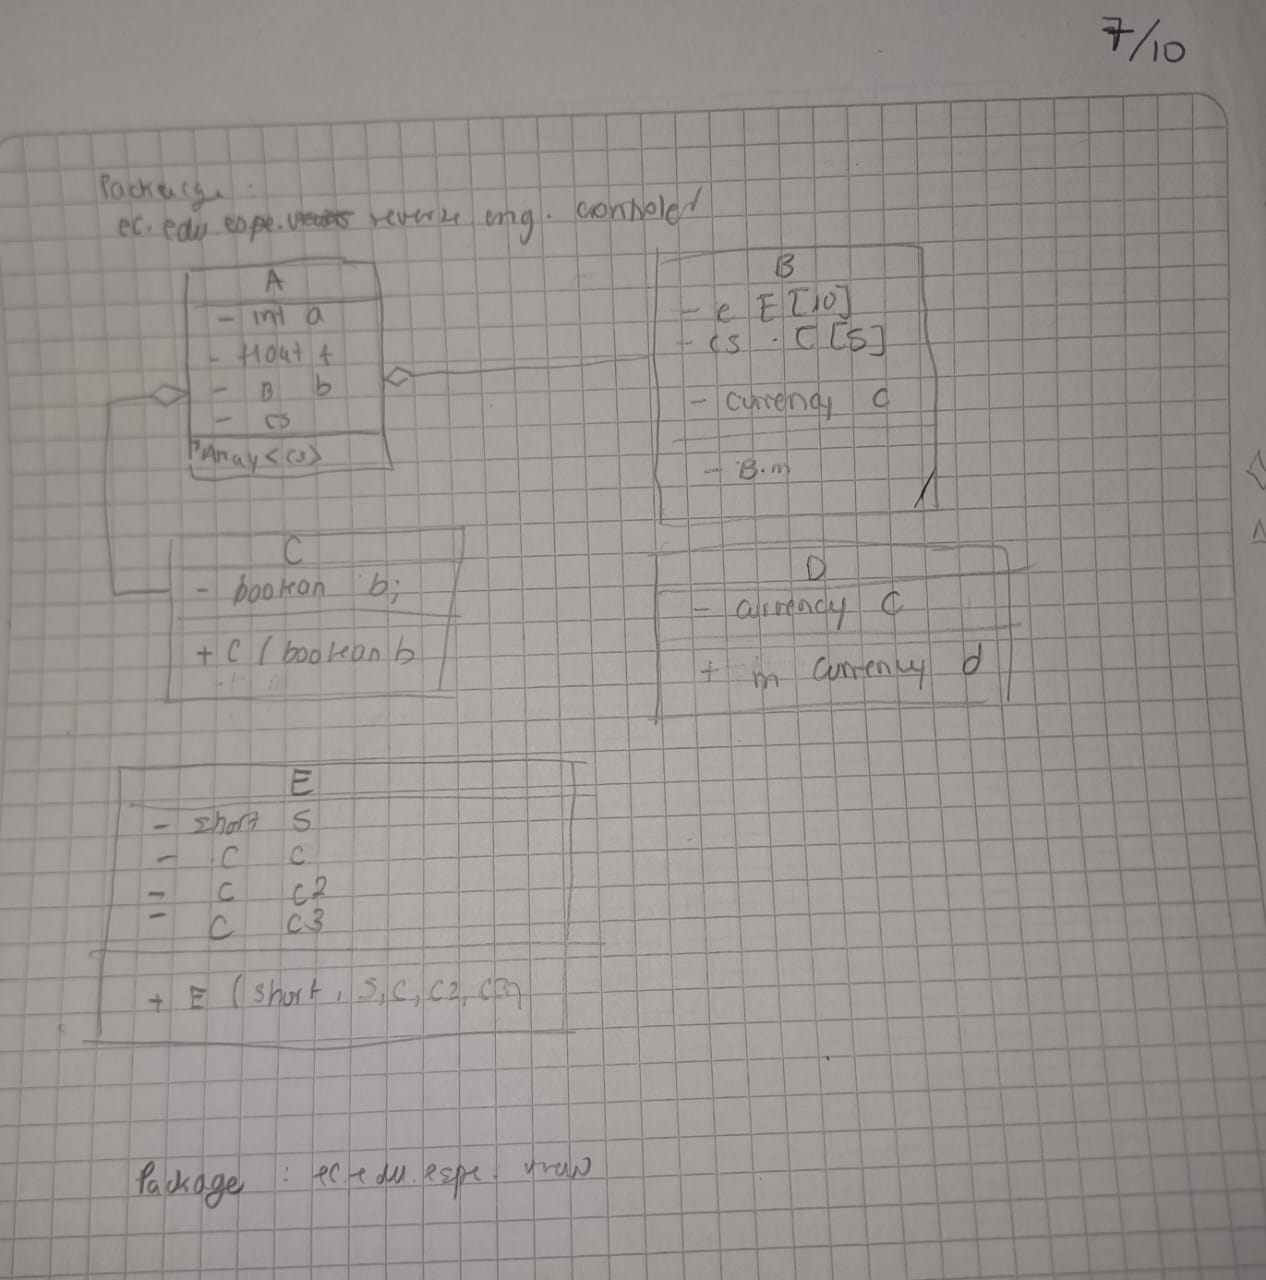 7/10
Package
ec. edu espe. reverze eng. controler
A
- int a
- float f
- B b
- cs
Array <cs>
B
- e E [10]
- cs . C [5]
- currency c
- B.m
C
- boolean b;
+ C ( boolean b
D
- currency C
+ m currency d
E
- short S
- C C
- C C2
- C C3
+ E ( short , S, C, C2, C3)
Package : ec edu. espe.